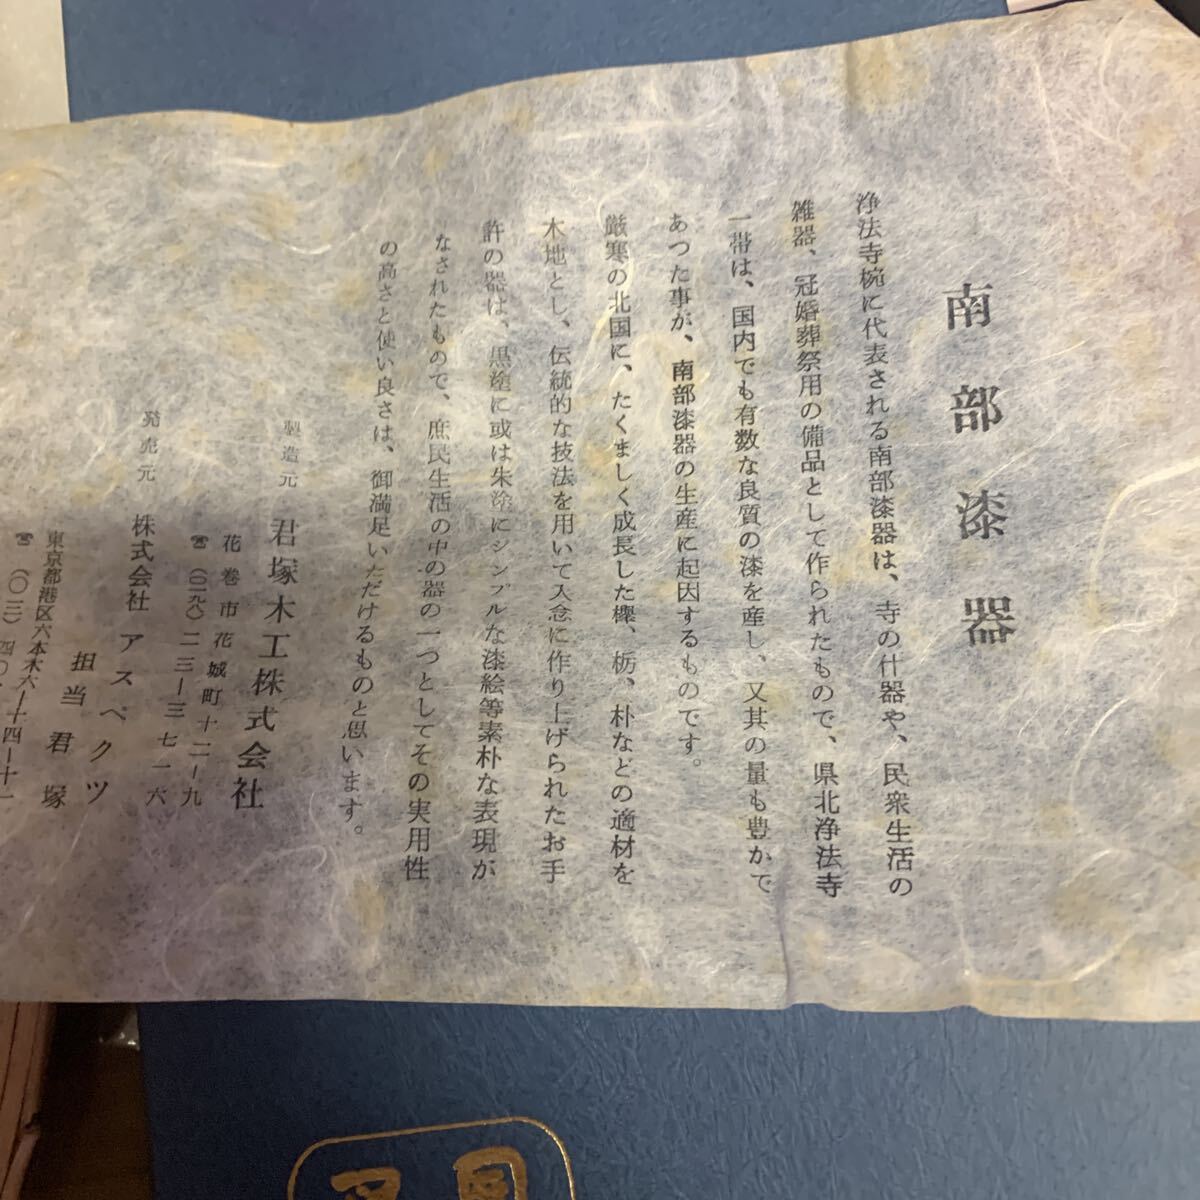 南部漆器
浄法寺椀に代表される南部漆器は、寺の什器や、民衆生活の
雑器、冠婚葬祭用の備品として作られたもので、県北浄法寺
一帯は、国内でも有数な良質の漆を産し、又其の量も豊かで
あつた事が、南部漆器の生産に起因するものです。
厳寒の北国に、たくましく成長した欅、栃、朴などの適材を
木地とし、伝統的な技法を用いて入念に作り上げられたお手
許の器は、黒塗に或は朱塗にシンプルな漆絵等素朴な表現が
なされたもので、庶民生活の中の器の一つとしてその実用性
の高さと使い良さは、御満足いただけるものと思います。
製造元 君塚木工株式会社
花巻市花城町十二ー九
☎(〇一九八)二三ー三七一六
発売元 株式会社 アスペクツ
担当 君塚
東京都港区六本木六ー十四ー十一
☎(〇三)四〇